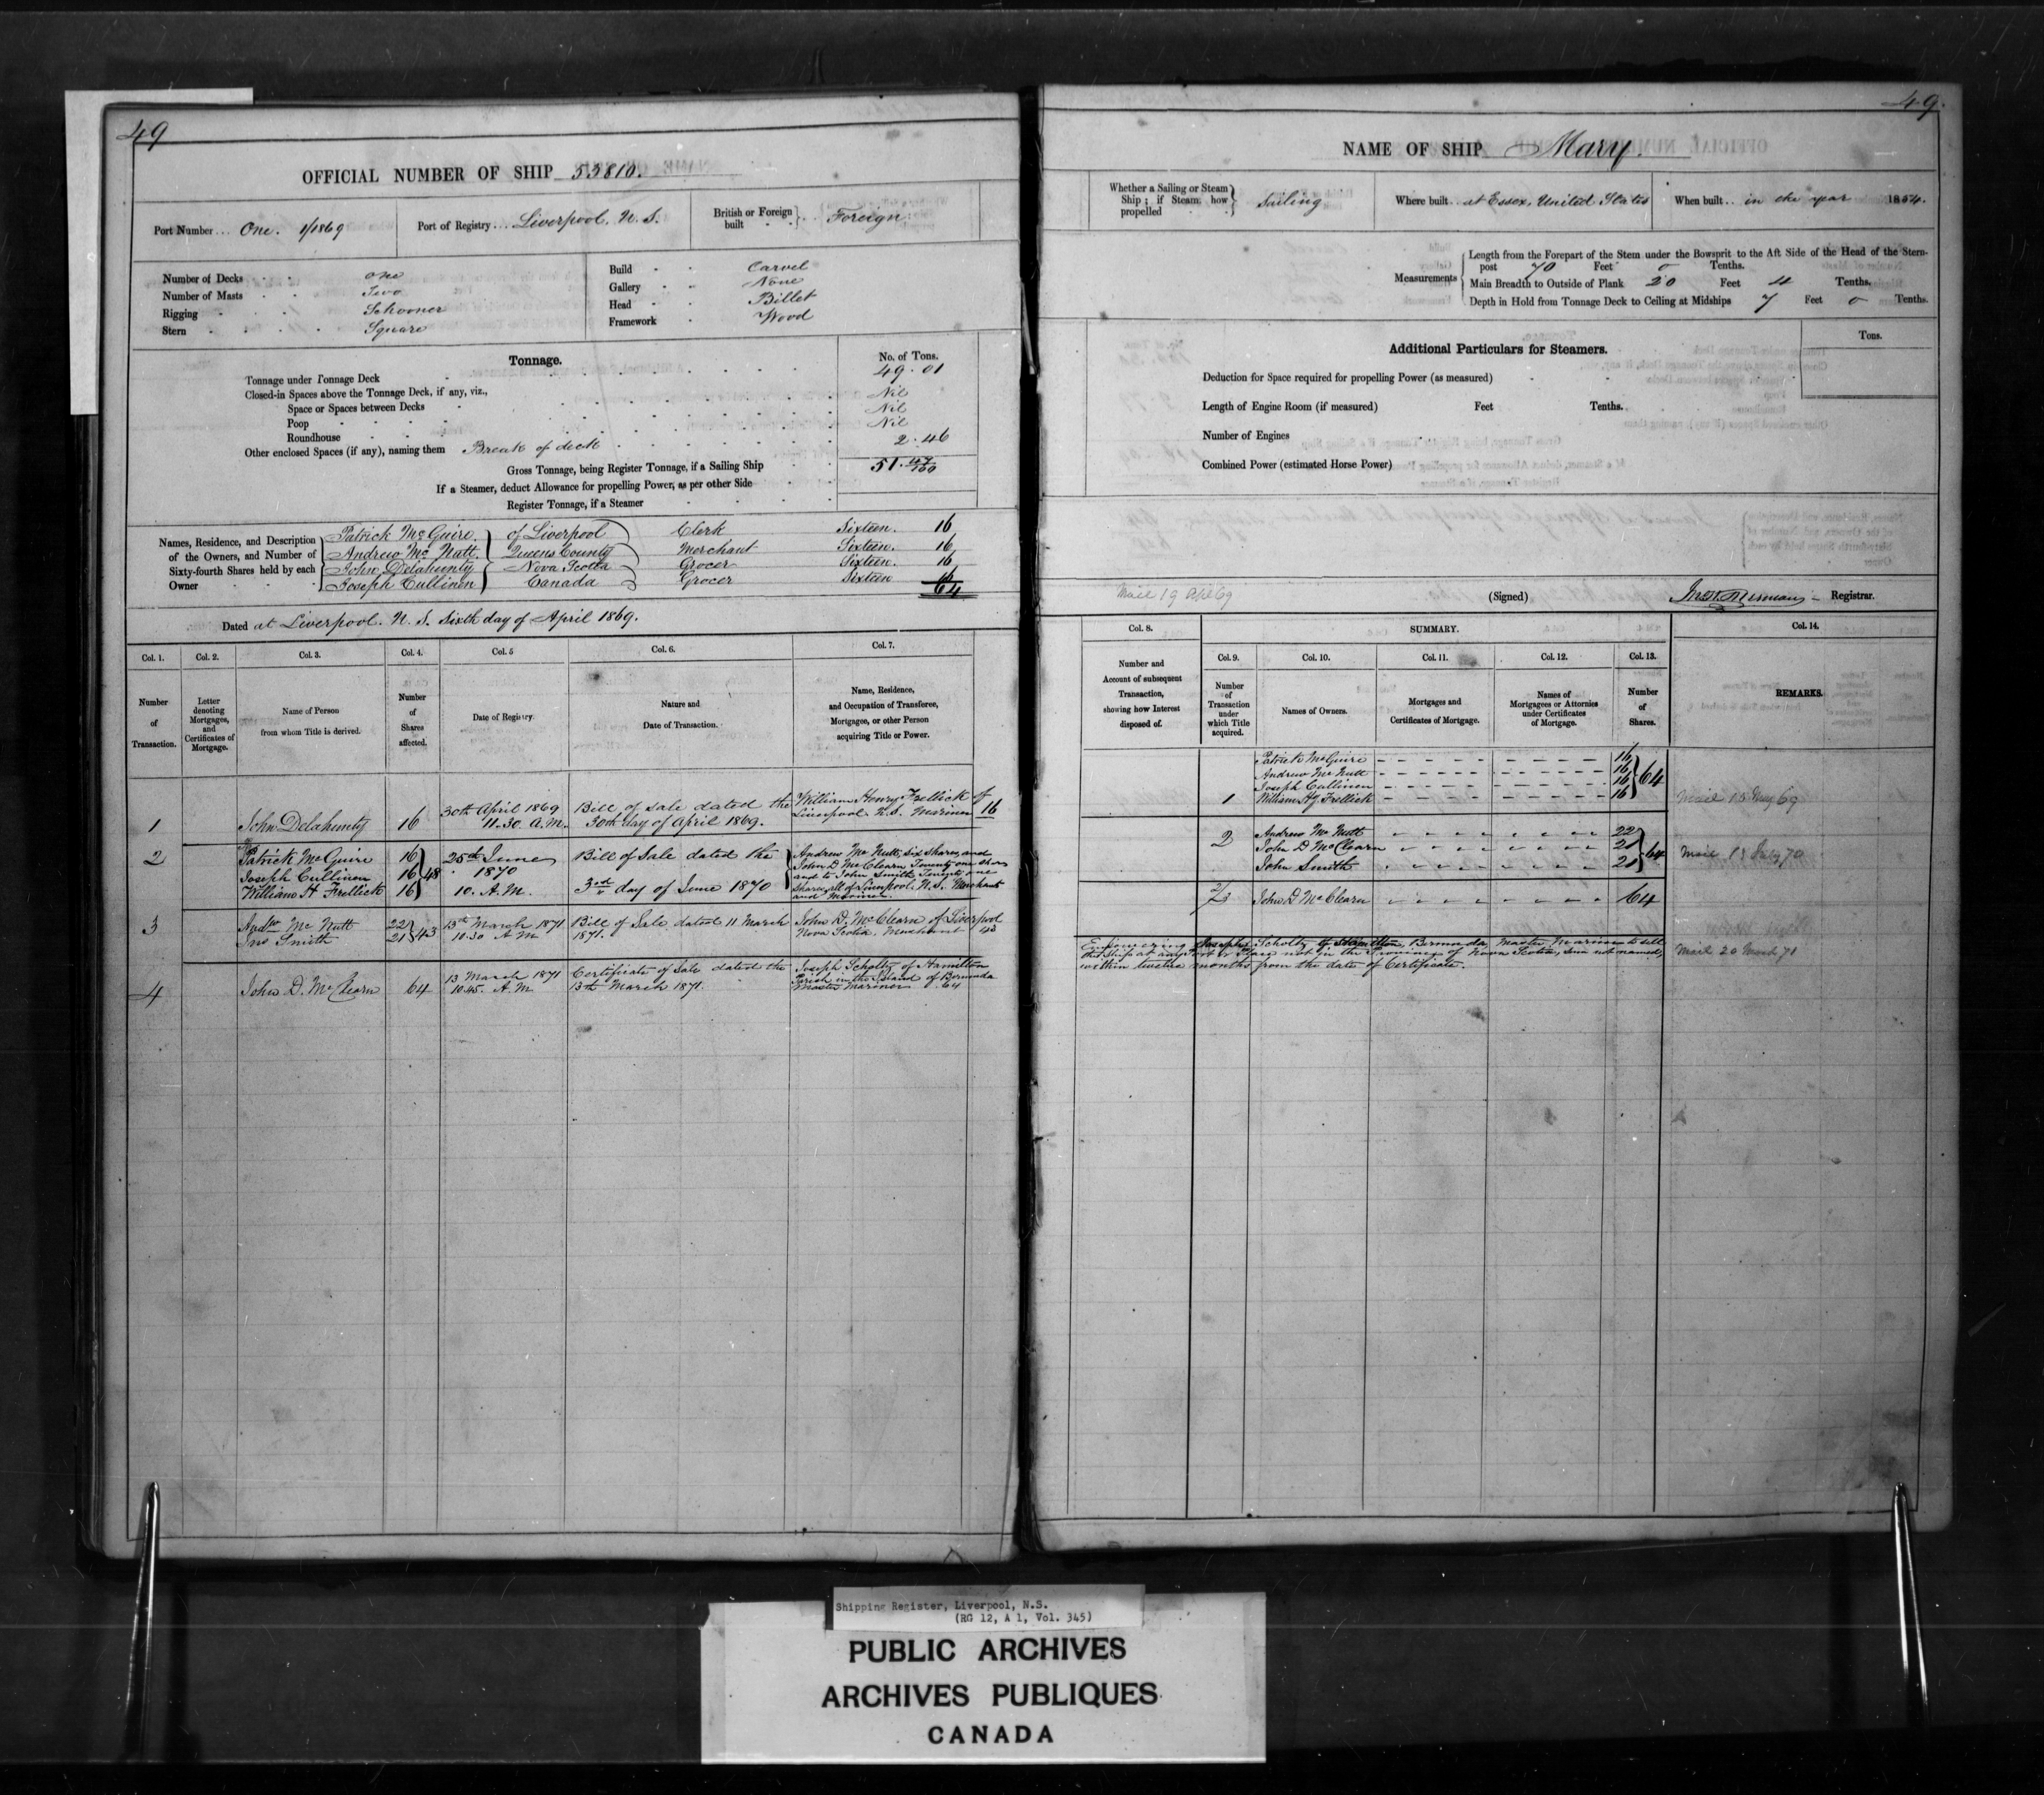 49
OFFICIAL NUMBER OF SHIP 53810.
Port Number... One. 1/1869
Port of Registry... Liverpool, N. S.
British or Foreign built Foreign
Number of Decks one
Number of Masts Two
Rigging Schooner
Stern Square
Build Carvel
Gallery None
Head Billet
Framework Wood
Tonnage.
No. of Tons.
Tonnage under Tonnage Deck 49.01
Closed-in Spaces above the Tonnage Deck, if any, viz.,
Space or Spaces between Decks Nil
Poop Nil
Roundhouse Nil
Other enclosed Spaces (if any), naming them Break of deck 2.46
Gross Tonnage, being Register Tonnage, if a Sailing Ship 51.47/100
If a Steamer, deduct Allowance for propelling Power, as per other Side
Register Tonnage, if a Steamer
Names, Residence, and Description of the Owners, and Number of Sixty-fourth Shares held by each Owner
Patrick McGuire of Liverpool Clerk Sixteen. 16
Andrew McNutt. Queens County Merchant Sixteen. 16
John Delahunty Nova Scotia Grocer Sixteen. 16
Joseph Cullinen Canada Grocer Sixteen 16
64
Dated at Liverpool. N. S. Sixth day of April 1869.
Col. 1. Col. 2. Col. 3. Col. 4. Col. 5 Col. 6. Col. 7.
Number of Transaction.
Letter denoting Mortgages, and Certificates of Mortgage.
Name of Person from whom Title is derived.
Number of Shares affected.
Date of Registry.
Nature and Date of Transaction.
Name, Residence, and Occupation of Transferee, Mortgagee, or other Person acquiring Title or Power.
1 John Delahunty 16
30th April 1869
11.30 A.M.
Bill of sale dated the
30th day of April 1869.
William Henry Frellick of
Liverpool N.S. Mariner 16
2 Patrick McGuire 16
Joseph Cullinen 16 48
William H Frellick 16
25th June
1870
10. A.M.
Bill of Sale dated the
3rd day of June 1870
Andrew McNutt, six shares, and
John D McClearn Twenty one shares
and to John Smith Twenty one
shares all of Liverpool. N.S. Merchant
and Mariner
3 Andw McNutt 22
Jno Smith 21 43
13th March 1871
10.30 A.M
Bill of Sale dated 11 March
1871.
John D. McClearn of Liverpool
Nova Scotia, Merchant 43
4 John D. McClearn 64
13 March 1871
10.45. A.M.
Certificate of Sale dated the
13th March 1871.
Joseph Scholtz of Hamilton
Parish in the Island of Bermuda
Master Mariner 64
49.
NAME OF SHIP Mary.
Whether a Sailing or Steam Ship; if Steam, how propelled Sailing
Where built.. at Essex, United States
When built.. in the year 1854.
Measurements
Length from the Forepart of the Stem under the Bowsprit to the Aft Side of the Head of the Stern-
post 70 Feet 0 Tenths.
Main Breadth to Outside of Plank 20 Feet 4 Tenths.
Depth in Hold from Tonnage Deck to Ceiling at Midships 7 Feet 0 Tenths.
Additional Particulars for Steamers.
Tons.
Deduction for Space required for propelling Power (as measured)
Length of Engine Room (if measured) Feet Tenths.
Number of Engines
Combined Power (estimated Horse Power)
(Signed) Registrar.
Col. 8. SUMMARY. Col. 14.
Col. 9. Col. 10. Col. 11. Col. 12. Col. 13.
Number and Account of subsequent Transaction, showing how Interest disposed of.
Number of Transaction under which Title acquired.
Names of Owners.
Mortgages and Certificates of Mortgage.
Names of Mortgagees or Attornies under Certificates of Mortgage.
Number of Shares.
REMARKS.
Patrick McGuire 16
Andrew McNutt 16
Joseph Cullinen 16 64
1 William Hy Frellick 16
2 Andrew McNutt 22
John D McClearn 21 64
John Smith 21
2/3 John D. McClearn 64
Empowering Joseph Scholtz of Hamilton, Bermuda, Master Mariner to sell
the Ship at any Port or Place not in the Province of Nova Scotia, sum not named,
within twelve months from the date of Certificate.
Mail 20 March 71
Shipping Register, Liverpool, N.S.
(RG 12, A 1, Vol. 345)
PUBLIC ARCHIVES
ARCHIVES PUBLIQUES
CANADA